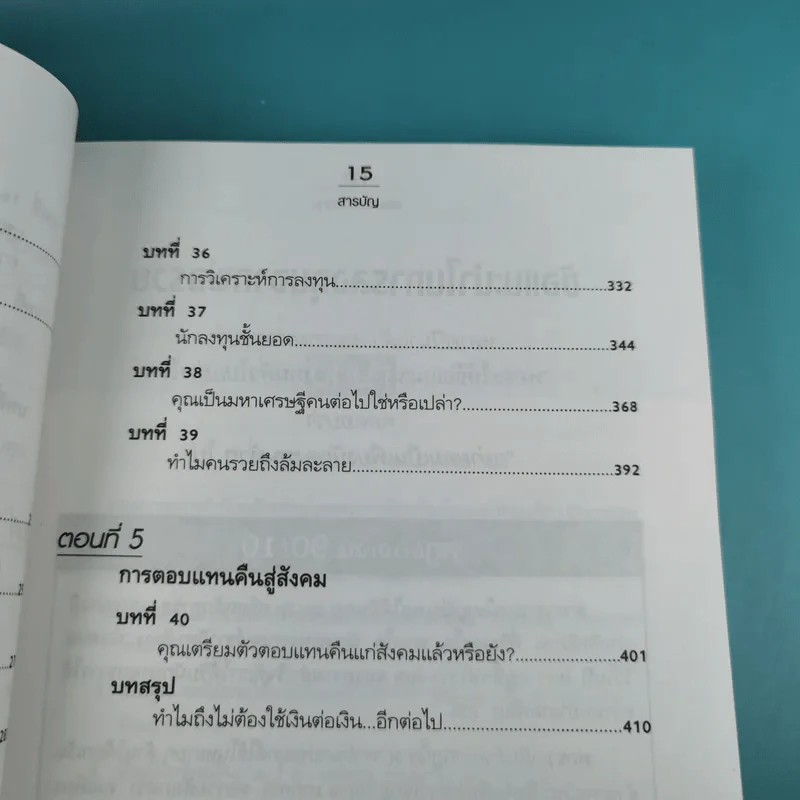 15
สารบัญ
บทที่ 36
การวิเคราะห์การลงทุน.....................................................332
บทที่ 37
นักลงทุนชั้นยอด..............................................................344
บทที่ 38
คุณเป็นมหาเศรษฐีคนต่อไปใช่หรือเปล่า?..............................368
บทที่ 39
ทำไมคนรวยถึงล้มละลาย...................................................392
ตอนที่ 5
การตอบแทนคืนสู่สังคม
บทที่ 40
คุณเตรียมตัวตอบแทนคืนแก่สังคมแล้วหรือยัง?.....................401
บทสรุป
ทำไมถึงไม่ต้องใช้เงินต่อเงิน...อีกต่อไป...................................410